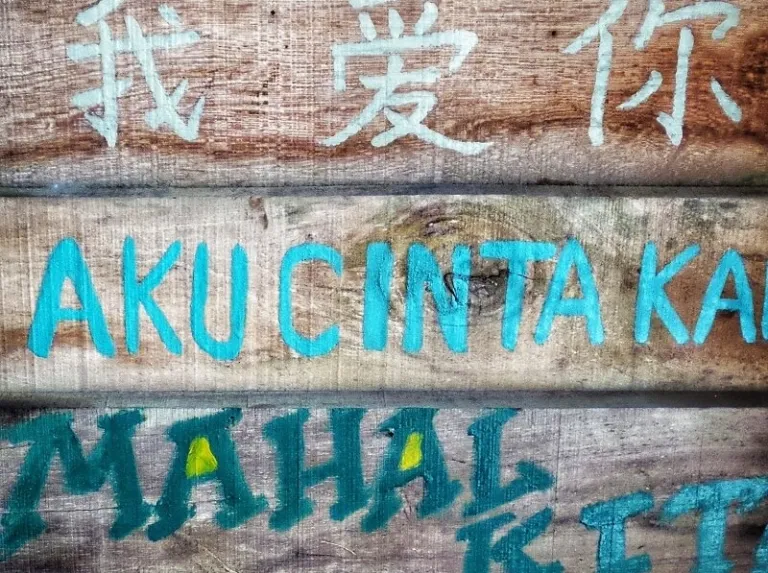 我爱你
AKU CINTA KA
MAHAL
KITA